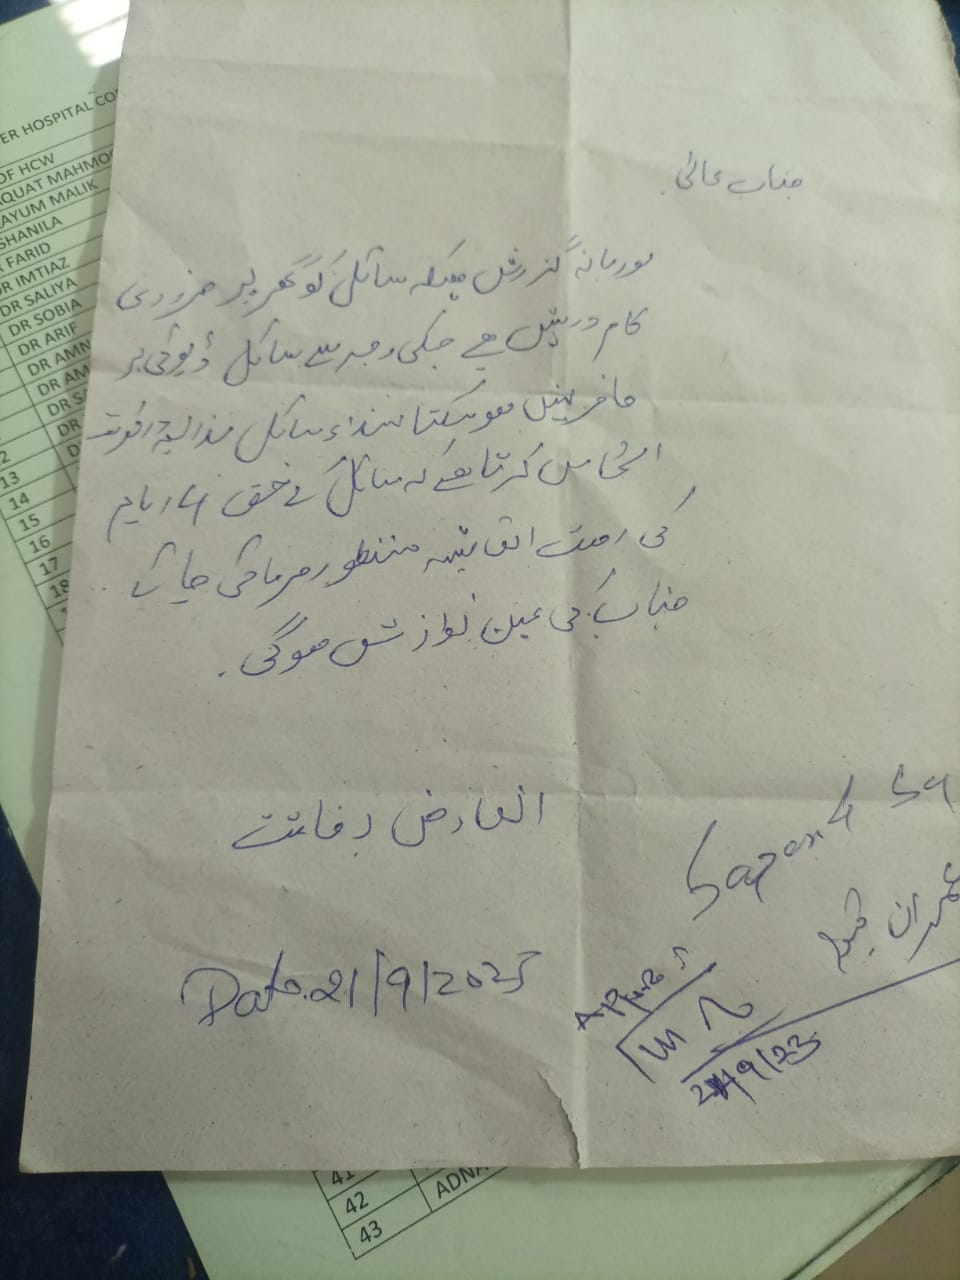 جناب عالی
مودبانہ گزارش ہیکہ سائل کو گھر پر ضروری
کام درپیش ہے جسکی وجہ سے سائل ڈیوٹی پر
حاضر نہیں ہوسکتا لہذا سائل بذریعہ درخواست
التماس کرتا ہے کہ سائل کے حق 4 ایام
کی رخصت اتفاقیہ منظور فرمائی جائے
جناب کی عین نوازش ہوگی.
العارض
Date. 21/9/2023
عمران
Approved
21/9/23
ER HOSPITAL
OF HCW
QUAT MAHMO
AYUM MALIK
SHANILA
FARID
DR IMTIAZ
DR SALIYA
DR SOBIA
DR ARIF
DR AMN
DR AM
DR S
DR
12
13 D
14
15
16
17
18
41
42 ADNA
43